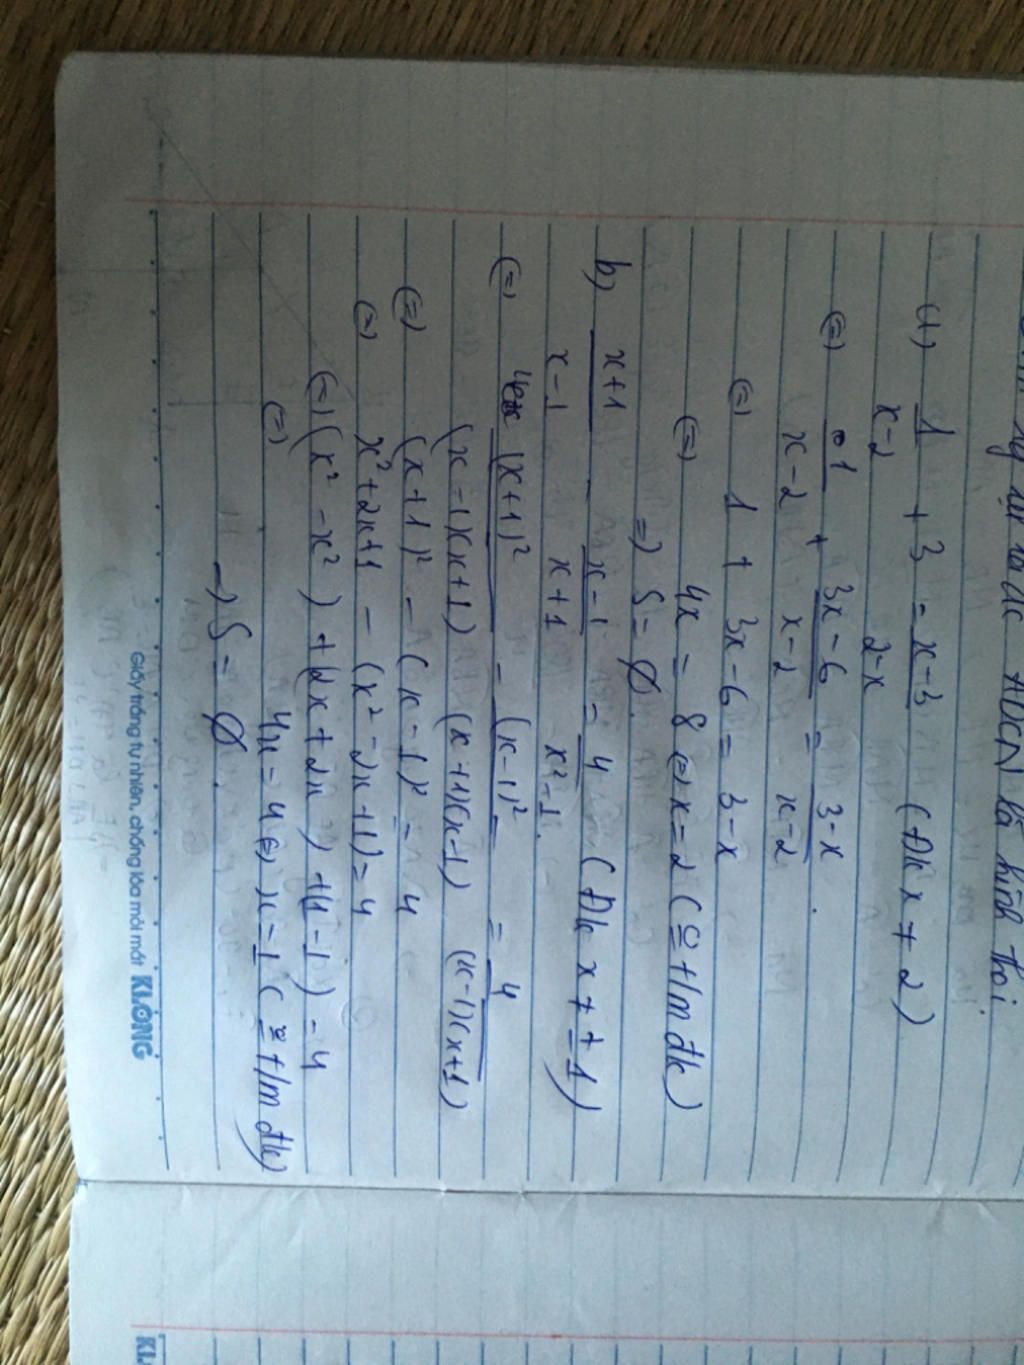 ADCN là hình thoi.
a) 1/(x-2) + 3 = (x-3)/(2-x) (Đk x ≠ 2)
(=) 1/(x-2) + (3x-6)/(x-2) = (3-x)/(x-2).
(=) 1 + 3x-6 = 3-x
(=) 4x = 8 (=) x = 2 (ko t/m đk)
=) S = ∅.
b) (x+1)/(x-1) - (x-1)/(x+1) = 4/(x²-1). (Đk x ≠ ±1)
(=) (x+1)²/((x-1)(x+1)) - (x-1)²/((x+1)(x-1)) = 4/((x-1)(x+1))
(=) (x+1)² - (x-1)² = 4
(=) x²+2x+1 - (x²-2x+1) = 4
(=) (x²-x²) + (2x+2x) + (1-1) = 4
(=) 4x = 4 (=) x = 1 (ko t/m đk)
→ S = ∅.
Giấy trắng tự nhiên, chống lóa mỏi mắt KLONG
KL